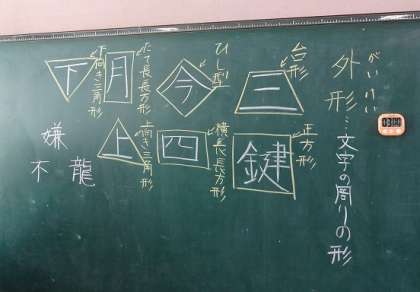 がいけい
外形…文字の周りの形
台形
三
ひし型
今
たて長長方形
月
下向き三角形
下
正方形
鍵
横長長方形
四
上向き三角形
上
嫌
龍
不